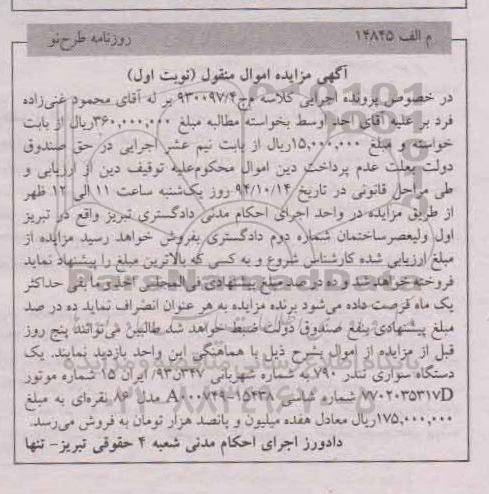 م الف ۱۴۸۴۵
روزنامه طرح‌نو
آگهی مزایده اموال منقول (نوبت اول)
در خصوص پرونده اجرایی کلاسه ج۹۳۰۰۹۷/۴ بر له آقای محمود غنی‌زاده
فرد بر علیه آقای احد اوسط بخواسته مطالبه مبلغ ۳۶۰,۰۰۰,۰۰۰ریال از بابت
خواسته و مبلغ ۱۵,۰۰۰,۰۰۰ریال از بابت نیم عشر اجرایی در حق صندوق
دولت بعلت عدم پرداخت دین اموال محکوم‌علیه توقیف دین از ارزیابی و
طی مراحل قانونی در تاریخ ۹۴/۱۰/۱۴ روز یک‌شنبه ساعت ۱۱ الی ۱۲ ظهر
از طریق مزایده در واحد اجرای احکام مدنی دادگستری تبریز واقع در تبریز
اول ولیعصرساختمان شماره دوم دادگستری بفروش خواهد رسید مزایده از
مبلغ ارزیابی شده کارشناس شروع و به کسی که بالاترین مبلغ را پیشنهاد نماید
فروخته خواهد شد و ده در صد مبلغ پیشنهادی فی‌المجلس اخذ و مابقی حداکثر
یک ماه فرصت داده می‌شود برنده مزایده به هر عنوان انصراف نماید ده در صد
مبلغ پیشنهادی بنفع صندوق دولت ضبط خواهد شد طالبین می‌توانند پنج روز
قبل از مزایده از اموال بشرح ذیل با هماهنگی این واحد بازدید نمایند. یک
دستگاه سواری تندر ۷۹۰ به شماره شهربانی ۳۴۷ن۹۳/ ایران ۱۵ شماره موتور
۷۷۰۲۰۳۵۳۱۷D شماره شاسی ۱۵۴۳۸-A۰۰۰۷۴۹ مدل ۸۶ نقره‌ای به مبلغ
۱۷۵,۰۰۰,۰۰۰ریال معادل هفده میلیون و پانصد هزار تومان به فروش می‌رسد.
دادورز اجرای احکام مدنی شعبه ۴ حقوقی تبریز- تنها